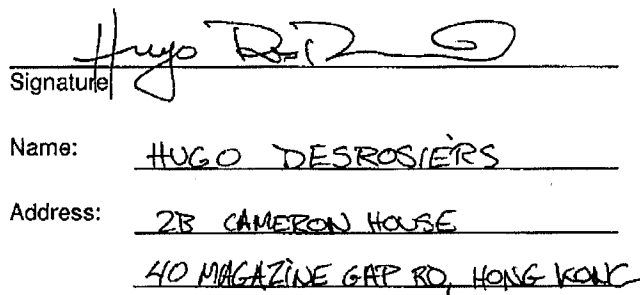 Hugo
Signature
Name: HUGO DESROSIERS
Address: 2B CAMERON HOUSE
40 MAGAZINE GAP RD, HONG KONG